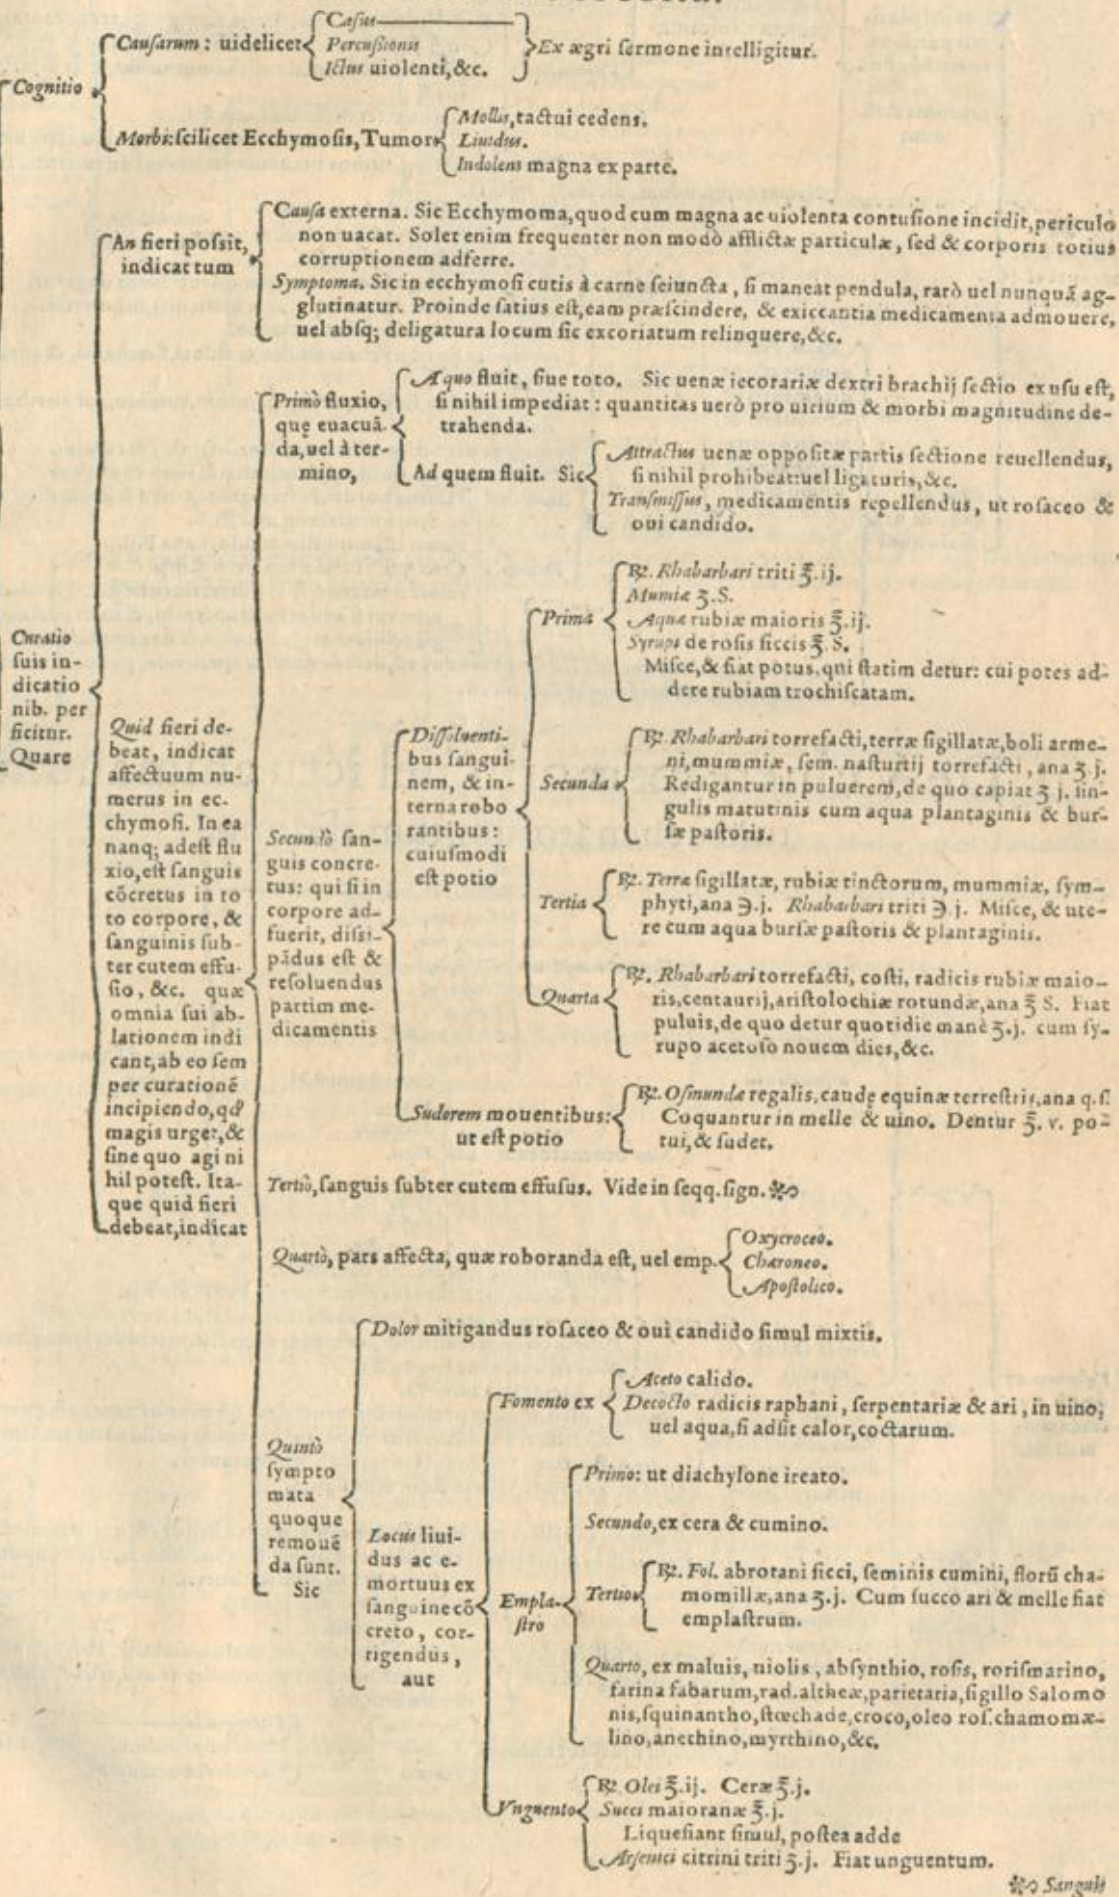 Cognitio
Causarum: uidelicet
Casus
Percussionis
Ictus uiolenti, &c.
Ex ægri sermone intelligitur.
Morbi: scilicet Ecchymosis, Tumor
Mollis, tactui cedens.
Liuidus.
Indolens magna ex parte.
Curatio
suis in-
dicatio
nib. per
ficitur.
Quare
An fieri possit,
indicat tum
Causa externa. Sic Ecchymoma, quod cum magna ac uiolenta contusione incidit, periculo
non uacat. Solet enim frequenter non modò afflictæ particulæ, sed & corporis totius
corruptionem adferre.
Symptoma. Sic in ecchymosi cutis à carne seiuncta, si maneat pendula, rarò uel nunquã ag-
glutinatur. Proinde satius est, eam præscindere, & exiccantia medicamenta admouere,
uel absq; deligatura locum sic excoriatum relinquere, &c.
Quid fieri de-
beat, indicat
affectuum nu-
merus in ec-
chymosi. In ea
nanq; adest flu
xio, est sanguis
cõcretus in to
to corpore, &
sanguinis sub-
ter cutem effu-
sio, &c. quæ
omnia sui ab-
lationem indi
cant, ab eo sem
per curationẽ
incipiendo, qđ
magis urget, &
sine quo agi ni
hil potest. Ita-
que quid fieri
debeat, indicat
Primò fluxio,
quę euacuã-
da, uel à ter-
mino,
A quo fluit, siue toto. Sic uenæ iecorariæ dextri brachij sectio ex usu est,
si nihil impediat: quantitas uerò pro uirium & morbi magnitudine de-
trahenda.
Ad quem fluit. Sic
Attractus uenæ oppositæ partis sectione reuellendus,
si nihil prohibeat: uel ligaturis, &c.
Transmissus, medicamentis repellendus, ut rosaceo &
oui candido.
Secundò san-
guis concre-
tus: qui si in
corpore ad-
fuerit, dissi-
pãdus est &
resoluendus
partim me-
dicamentis
Dissoluenti-
bus sangui-
nem, & in-
terna robo
rantibus:
cuiusmodi
est potio
Prima
℞. Rhabarbari triti ℥.ij.
Mumiæ ʒ.S.
Aquæ rubiæ maioris ℥.ij.
Syrupi de rosis siccis ℥.S.
Misce, & fiat potus, qui statim detur: cui potes ad-
dere rubiam trochiscatam.
Secunda
℞. Rhabarbari torrefacti, terræ sigillatæ, boli arme-
ni, mummiæ, sem. nasturtij torrefacti, ana ʒ j.
Redigantur in puluerem, de quo capiat ʒ j. sin-
gulis matutinis cum aqua plantaginis & bur-
sæ pastoris.
Tertia
℞. Terræ sigillatæ, rubiæ tinctorum, mummiæ, sym-
phyti, ana ℈.j. Rhabarbari triti ℈ j. Misce, & ute-
re cum aqua bursæ pastoris & plantaginis.
Quarta
℞. Rhabarbari torrefacti, costi, radicis rubiæ maio-
ris, centaurij, aristolochiæ rotundæ, ana ℥ S. Fiat
puluis, de quo detur quotidie manè ʒ.j. cum sy-
rupo acetoso nouem dies, &c.
Sudorem mouentibus:
ut est potio
℞. Osmundæ regalis, caudę equinæ terrestris, ana q.s.
Coquantur in melle & uino. Dentur ℥. v. po-
tui, & sudet.
Tertiò, sanguis subter cutem effusus. Vide in seqq. sign.
Quartò, pars affecta, quæ roboranda est, uel emp.
Oxycroceo.
Charoneo.
Apostolico.
Quintò
sympto
mata
quoque
remouẽ
da sunt.
Sic
Dolor mitigandus rosaceo & oui candido simul mixtis.
Locus liui-
dus ac e-
mortuus ex
sanguine cõ
creto, cor-
rigendus,
aut
Fomento ex
Aceto calido.
Decocto radicis raphani, serpentariæ & ari, in uino,
uel aqua, si adsit calor, coctarum.
Empla-
stro
Primo: ut diachylone ireato.
Secundo, ex cera & cumino.
Tertio
℞. Fol. abrotani sicci, seminis cumini, florũ cha-
momillæ, ana ʒ.j. Cum succo ari & melle fiat
emplastrum.
Quarto, ex maluis, uiolis, absynthio, rosis, rorismarino,
farina fabarum, rad. altheæ, parietaria, sigillo Salomo
nis, squinantho, stœchade, croco, oleo ros. chamomæ-
lino, anethino, myrthino, &c.
Vnguento
℞. Olei ℥.ij. Ceræ ℥.j.
Succi maioranæ ℥.j.
Liquefiant simul, postea adde
Arsenici citrini triti ʒ.j. Fiat unguentum.
Sanguis